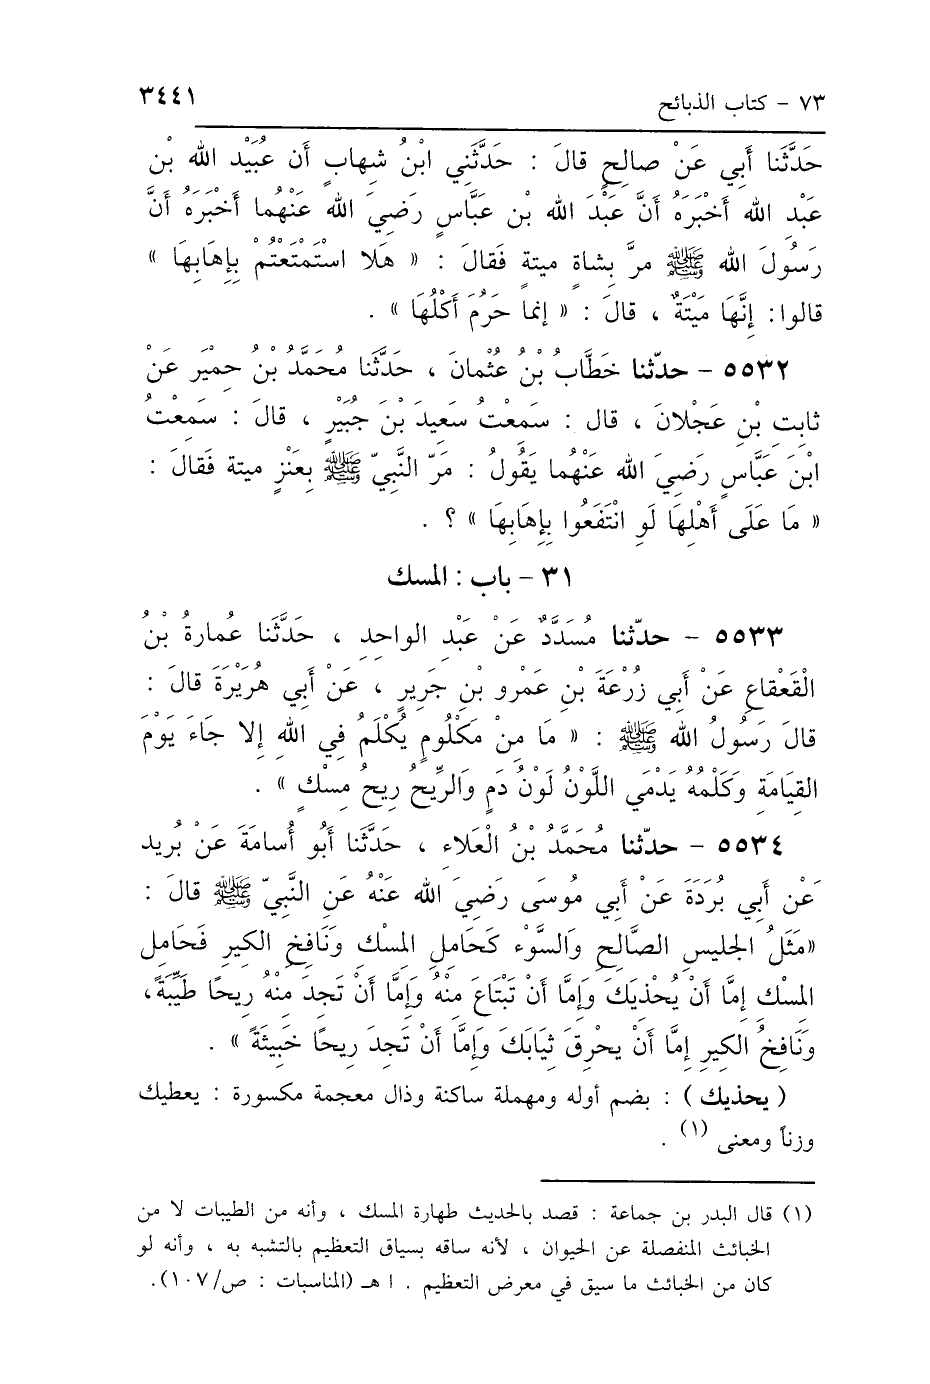 ٧٣ - كتاب الذبائح ٣٤٤١
حَدَّثَنا أَبي عَنْ صالحٍ قالَ : حَدَّثَنِي ابْنُ شِهابٍ أَن عُبَيْد الله بْن
عَبْد الله أَخْبَرَهُ أَنَّ عَبْدَ الله بْن عَبَّاسٍ رَضِيَ الله عَنْهُما أَخْبَرَهُ أَنَّ
رَسُولَ الله ﷺ مرَّ بِشاةٍ ميتةٍ فَقالَ : « هَلا اسْتَمْتَعْتُمْ بِإِهَابِهَا »
قالوا: إِنَّهَا مَيْتَةٌ ، قالَ : « إنما حَرُمَ أَكْلُهَا » .
٥٥٣٢ - حدّثنا خَطَّابُ بْنُ عُثْمانَ ، حَدَّثَنا مُحَمَّدُ بْنُ حِمْيَرٍ عَنْ
ثابِتِ بْنِ عَجْلانَ ، قال : سَمِعْتُ سَعِيدَ بْنَ جُبَيْرٍ ، قالَ : سَمِعْتُ
ابْنَ عَبَّاسٍ رَضِيَ الله عَنْهُما يَقُولُ : مَرّ النَّبِيّ ﷺ بِعَنْزٍ ميتة فَقالَ :
« مَا عَلَى أَهْلِهَا لَوِ انْتَفَعُوا بِإِهَابِهَا » ؟ .
٣١ - باب : المسك
٥٥٣٣ - حدّثنا مُسَدَّدٌ عَنْ عَبْدِ الواحِدِ ، حَدَّثَنا عُمارةُ بْنُ
الْقَعْقاعِ عَنْ أَبي زُرْعَةَ بْنِ عَمْرو بْنِ جَرِيرٍ ، عَنْ أَبي هُرَيْرَةَ قالَ :
قالَ رَسُولُ الله ﷺ : « مَا مِنْ مَكْلُومٍ يُكْلَمُ فِي اللهِ إِلا جَاءَ يَوْمَ
القِيَامَةِ وَكَلْمُهُ يَدْمَي اللَّوْنُ لَوْنُ دَمٍ وَالرِّيْحُ رِيحُ مِسْكٍ » .
٥٥٣٤ - حدّثنا مُحَمَّدُ بْنُ الْعَلاءِ ، حَدَّثَنا أَبُو أُسامَةَ عَنْ بُريد
عَنْ أَبي بُرْدَةَ عَنْ أَبي مُوسَى رَضِيَ الله عَنْهُ عَنِ النَّبِيّ ﷺ قالَ :
«مَثَلُ الجليسِ الصَّالِحِ وَالسَّوْءِ كَحَامِلِ المِسْكِ وَنَافِخِ الكِيرِ فَحَامِلِ
المِسْكِ إِمَّا أَنْ يُحْذِيَكَ وَإِمَّا أَنْ تَبْتَاعَ مِنْهُ وَإِمَّا أَنْ تَجِدَ مِنْهُ رِيحًا طَيِّبَةً،
وَنَافِخُ الكِيرِ إِمَّا أَنْ يحْرِقَ ثِيَابَكَ وَإِمَّا أَنْ تَجِدَ رِيحًا خَبِيثَةً » .
( يحذيك ) : بضم أوله ومهملة ساكنة وذال معجمة مكسورة : يعطيك
وزناً ومعنى (١) .
(١) قال البدر بن جماعة : قصد بالحديث طهارة المسك ، وأنه من الطيبات لا من
الخبائث المنفصلة عن الحيوان ، لأنه ساقه بسياق التعظيم بالتشبه به ، وأنه لو
كان من الخبائث ما سيق في معرض التعظيم . ا هـ (المناسبات : ص/١٠٧).